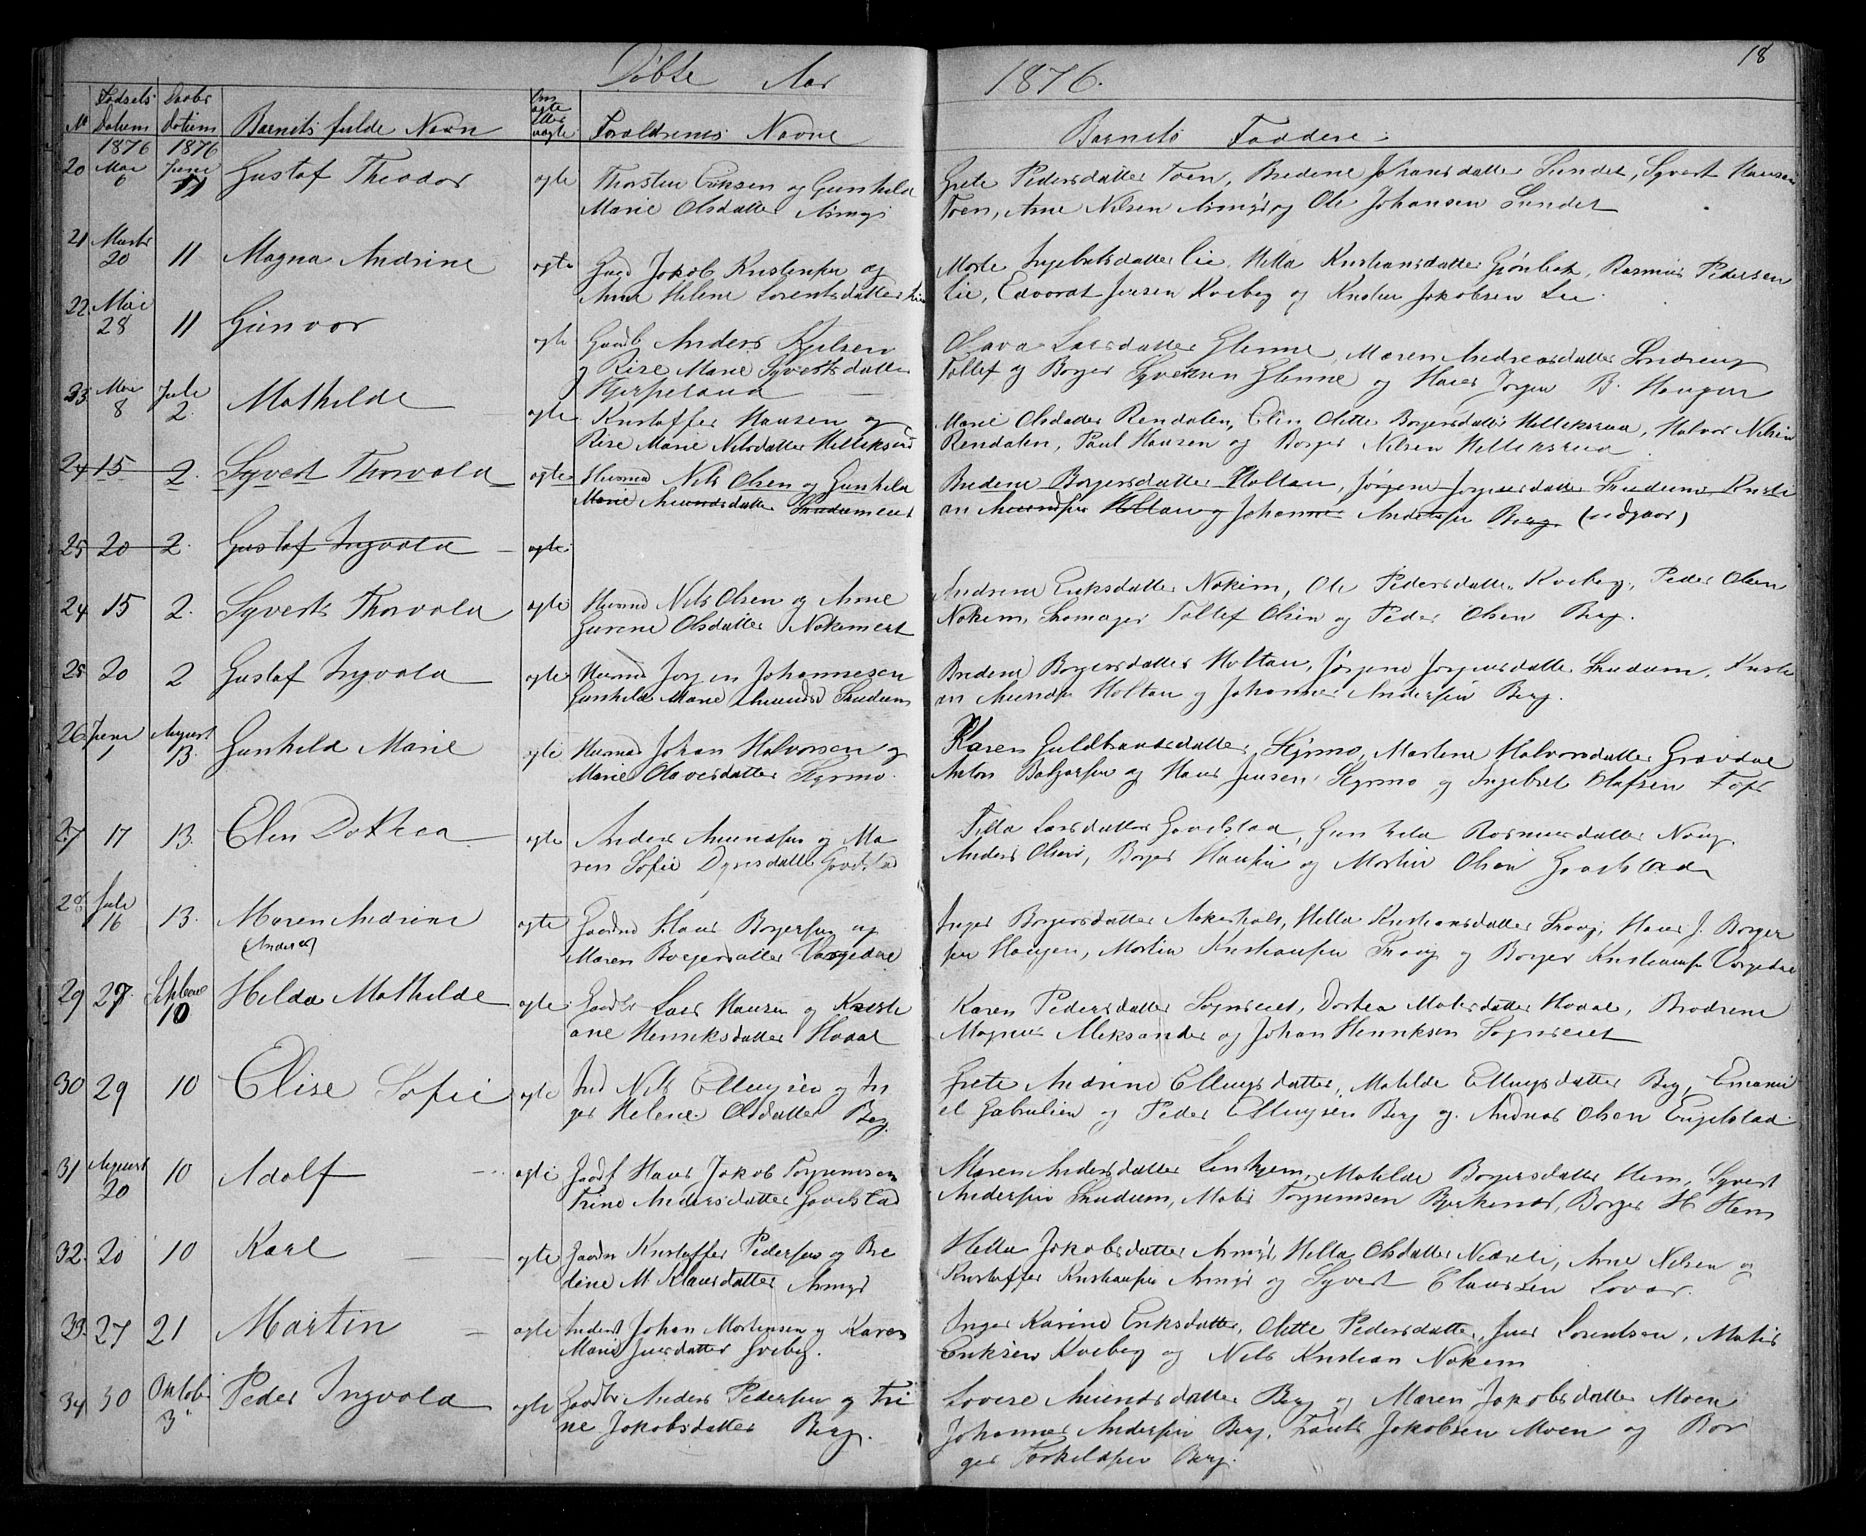 18
Døbte Aar 1876.
No Fødsels Datum Daabs Datum Barnets fulde Navn Om ægte eller uægte Forældrenes Navne Barnets Faddere
1876 1876
20 Mai 6 Juni 11 Gustaf Theodor ægte Thorsten Eriksen og Gunhild
Marie Olsdatter
Grete Pedersdatter Toen, Bredene Johansdatter Sundet, Syvert Hansen
Toen, Arne Nilsen og Ole Johansen Sundet
21 Marts 20 11 Magna Andrine ægte Jakob Kristensen og
Anne Helene Lorentsdatter Lie
Marte Ingebretsdatter Lie, Hella Kristiansdatter Grønbek, Rasmus Pedersen
Lie, Edvardt Jensen Kveberg og Kristen Jakobsen Lie.
22 Mai 28 11 Gunvor ægte Gaardb Anders
og Rise Marie Syvertsdatter
Larsdatter Glenne, Maren Andreasdatter
Tollef og Borger Syversen Glenne og Hans Jørgen B. Haugen
23 Mai 8 Juli 2. Mathilde ægte Kristoffer Hansen og
Rise Marie Nilsdatter Helleksrud
Marie Olsdatter Rendalen, Elen Olette Borgersdatter Helleksrud, Halvor Nilsen
Rendalen, Paul Hansen og Borger Nilsen Helleksrud
24 15 2. Syvert Thorvald ægte Husmd Nils Olsen Gunhild
Marie Amundsdatter
Bredene Borgersdatter Holtan, Jørgene Jørgensdatter Snudum Kristi
an Amundsen Holtan og Johannes Andersen Berg (udgaar)
25 20 2. Gustaf Ingvald ægte
24 15 2. Syverts Thorvald ægte Husmd Nils Olsen og Anne
Gurine Olsdatter Nokimeiet
Andrine Eriksdatter Nokim, Ole Pedersdatter Kveberg, Peder Olsen
Nokim, Skomager Tollef Olsen og Peder Olsen Berg.
25 20 2 Gustaf Ingvald ægte Husmd Jørgen Johannesen
Gunhild Marie Amundsd Snudum
Bredene Borgersdatter Holtan, Jørgene Jørgensdatter Snudum, Kristi
an Amundsen Holtan og Johannes Andersen Berg.
26 Juni 1 August 13. Gunhild Marie ægte Husmd Johan Halvorsen og
Marie Olavesdatter Styrmo.
Karen Guldbrandsdatter Styrmo, Martine Halvorsdatter Gravdal
Anton og Hans Jensen Styrmo og Ingebret Olafsen
27 17 13. Elen Dortea ægte Anders Amundsen og Ma
ren Sofie Gavelstad
Larsdatter Gavelstad, Gunhild Rasmusdatter
Anders Olsen, Borger Hansen og Martin Olsen Gavelstad
28 Juli 16 13. Maren Andrine ægte Gaardmd Hans Borgersen og
(Andrea)
Maren Borgersdatter
Inger Borgersdatter Akersholt, Hella Kristiansdatter, Hans J. Borger
sen Haugen, Martin Kristiansen og Borger Kristiansen
29 27. Septembr 10 Hilda Mathilde ægte Gaardbr Lars Hansen og Kristi
ane Henriksdatter Hoval
Karen Pedersdatter Sogneeiet, Dortea Matisdatter Hoval, Brødrene
Magnus Aleksander og Johan Henriksen Sogneeiet
30 29 10 Elise Sofie ægte Ind Nils Ellingsen og In
ger Helene Olsdatter Berg.
Grete Andrine Ellingsdatter, Matilde Ellingsdatter Berg, Emanu
el Gabrielsen og Peder Ellingsen Berg og Andreas Olsen Engelstad
31 August 20 10 Adolf ægte Gaardf Hans Jakob Torgrimsen
Trine Andersdatter Gavelstad
Maren Andersdatter, Matilde Borgersdatter Hem, Syvert
Andersen Snudum, Matis Torgrimsen Bjerkenæs, Borger H Hem
32. 20 10 Karl ægte Gaardm Kristoffer Pedersen og Be
line M Klausdatter
Hella Jakobsdatter, Hella Olsdatter, Arne Nilsen og
Kristoffer Kristiansen og Syvert Claussen
33 27 21 Martin ægte Inderst Johan Mortensen og Karen
Marie Iversdatter
Inger Karine Eriksdatter, Olette Pedersdatter, Iver Lorentsen, Matis
Eriksen Kveberg og Nils Kristian Nokim
34 30 Oktobr 3 Peder Ingvald ægte Gaardbr Anders Pedersen og Tri
ne Jakobsdatter Berg.
Lovise Amundsdatter Berg og Maren Jakobsdatter Moen
Johannes Andersen Berg, Frants Jakobsen Moen og Bor
ger Torkildsen Berg.